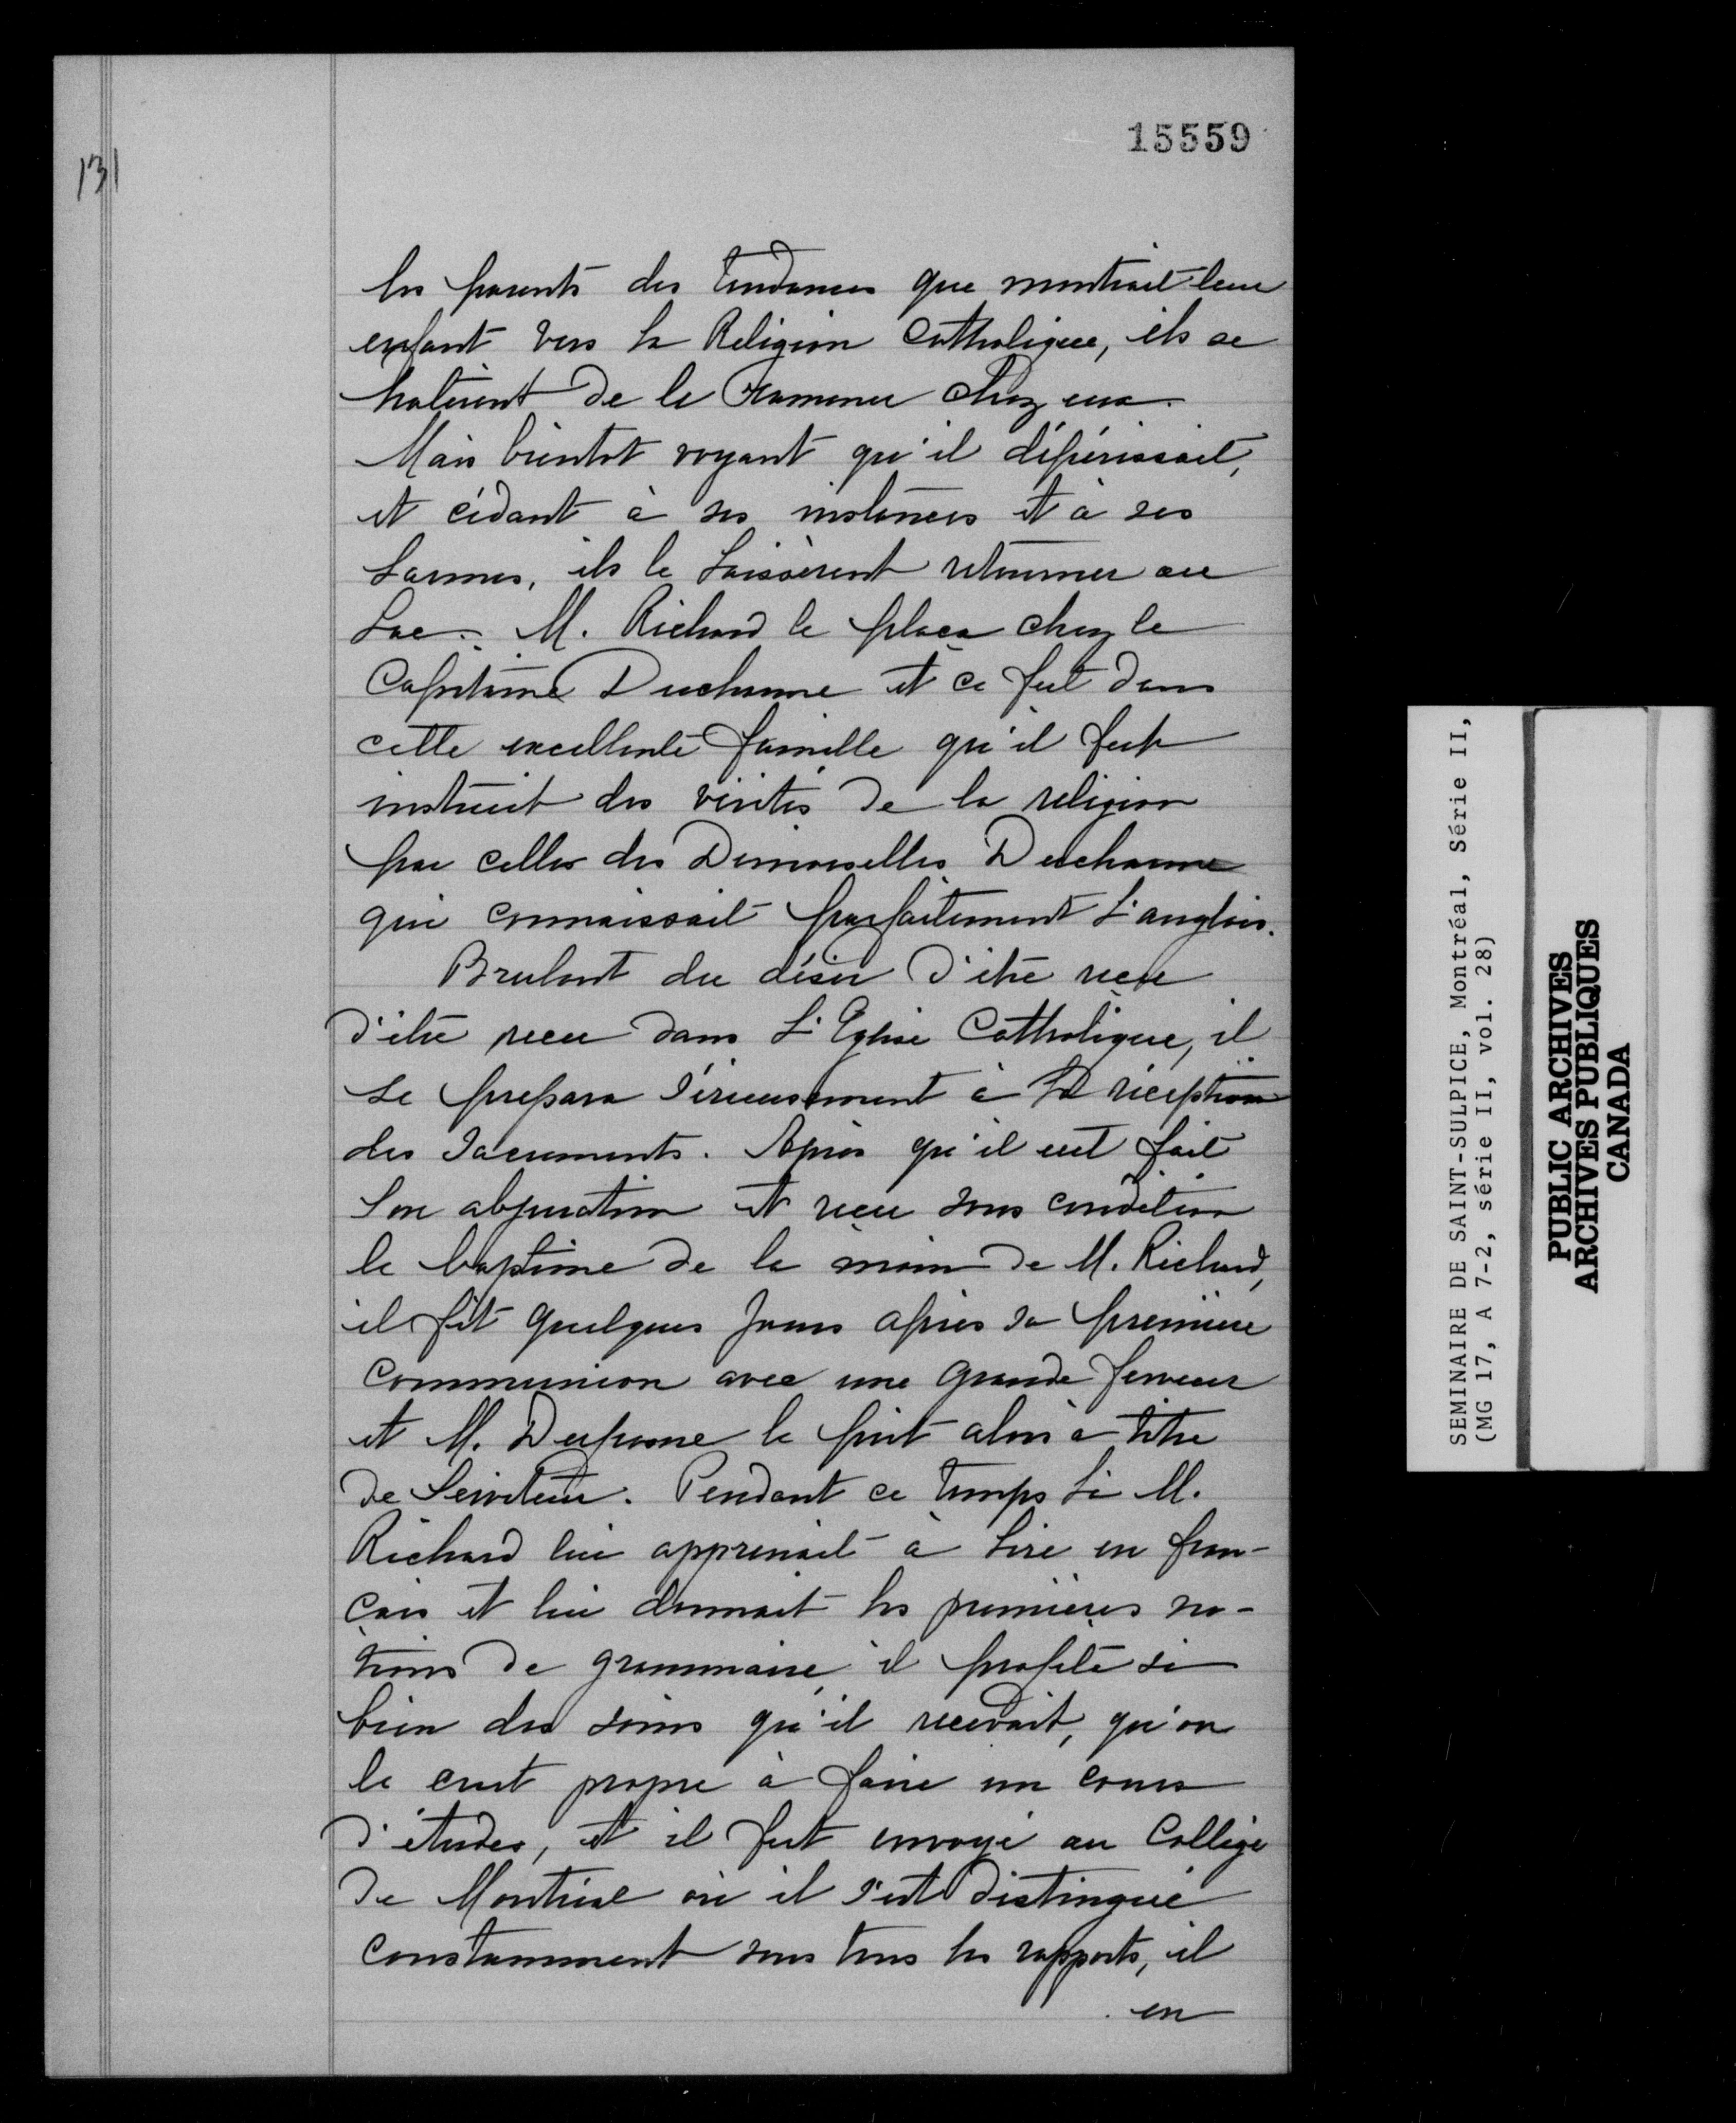 15559
131
les parents des tendances que montrait leur
enfant vers la Religion Catholique, ils se
hatèrent de le ramener chez eux.
Mais bientot voyant qu'il dépérissait,
et cédant à ses instances et à ses
larmes, ils le laissèrent retourner au
Lac. M. Richard le plaça chez le
Capitaine Ducharme et ce fut dans
cette excellente famille qu'il fut
instruit des vérités de la religion
par celles des Demoiselles Ducharme
qui connaissait parfaitement l'anglais.
Brulant du désir d'être reçu
d'être reçu dans L'Eglise Catholique, il
se prepara sérieusement à la réception
des Sacrements. Après qu'il eut fait
son abjuration et reçu sous condition
le baptême de la main de M. Richard,
il fit quelques jours après sa première
communion avec une grande ferveur
et M. le prit alors a titre
de Serviteur. Pendant ce temps là M.
Richard lui apprenait à lire en fran-
çais et lui donnait les premières no-
tions de grammaire, il profita si
bien des soins qu'il recevait, qu'on
le crut propre à faire un cours
d'études, et il fut envoyé au Collège
de Montréal où il s'est distingué
constamment sous tous les rapports, il
en
SEMINAIRE DE SAINT-SULPICE, Montréal, Série II,
(MG 17, A 7-2, série II, vol. 28)
PUBLIC ARCHIVES
ARCHIVES PUBLIQUES
CANADA